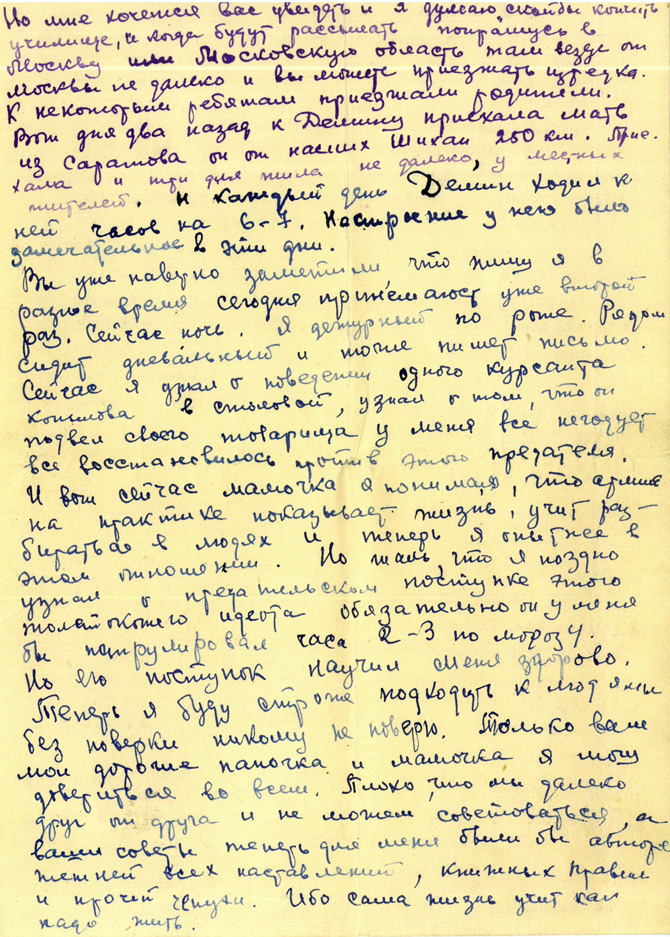 Но мне хочется вас увидеть и я думаю скорей бы кончить
училище, и когда будут рассылать попрошусь в
Москву или Московскую область там везде от
Москвы не далеко и вы можете приезжать изредка.
К некоторым ребятам приезжали родители.
Вот дня два назад к Демину приехала мать
из Саратова он от наших Шихан 250 км. Прие-
хала и три дня жила не далеко, у местных
жителей. И каждый день Демин ходил к
ней часов на 6-7. Настроение у него было
замечательное в эти дни.
Вы уже наверно заметили что пишу я в
разное время сегодня принемаюсь уже второй
раз. Сейчас ночь. Я дежурный по роте. Рядом
сидит дневальный и тоже пишет письмо.
Сейчас я узнал о поведении одного курсанта
в столовой, узнал о том, что он
подвел своего товарища у меня все негодует
все восстановилось против этого предателя.
И вот сейчас мамочка я понимаю, что армия
на практике показывает жизнь, учит раз-
бираться в людях и теперь я опытнее в
этом отношении. Но жаль, что я поздно
узнал о предательском поступке этого
идиота обязательно он у меня
бы патрулировал часа 2-3 по морозу.
Но его поступок научил меня здорово.
Теперь я буду строже подходить к людям и
без поверки никому не поверю. Только вам
мои дорогие папочка и мамочка я могу
довериться во всем. Плохо, что мы далеко
друг от друга и не можем советоваться, а
ваши советы теперь для меня были бы авторе-
тетней всех наставлений, книжных правил
и прочей чепухи. Ибо сама жизнь учит как
надо жить.